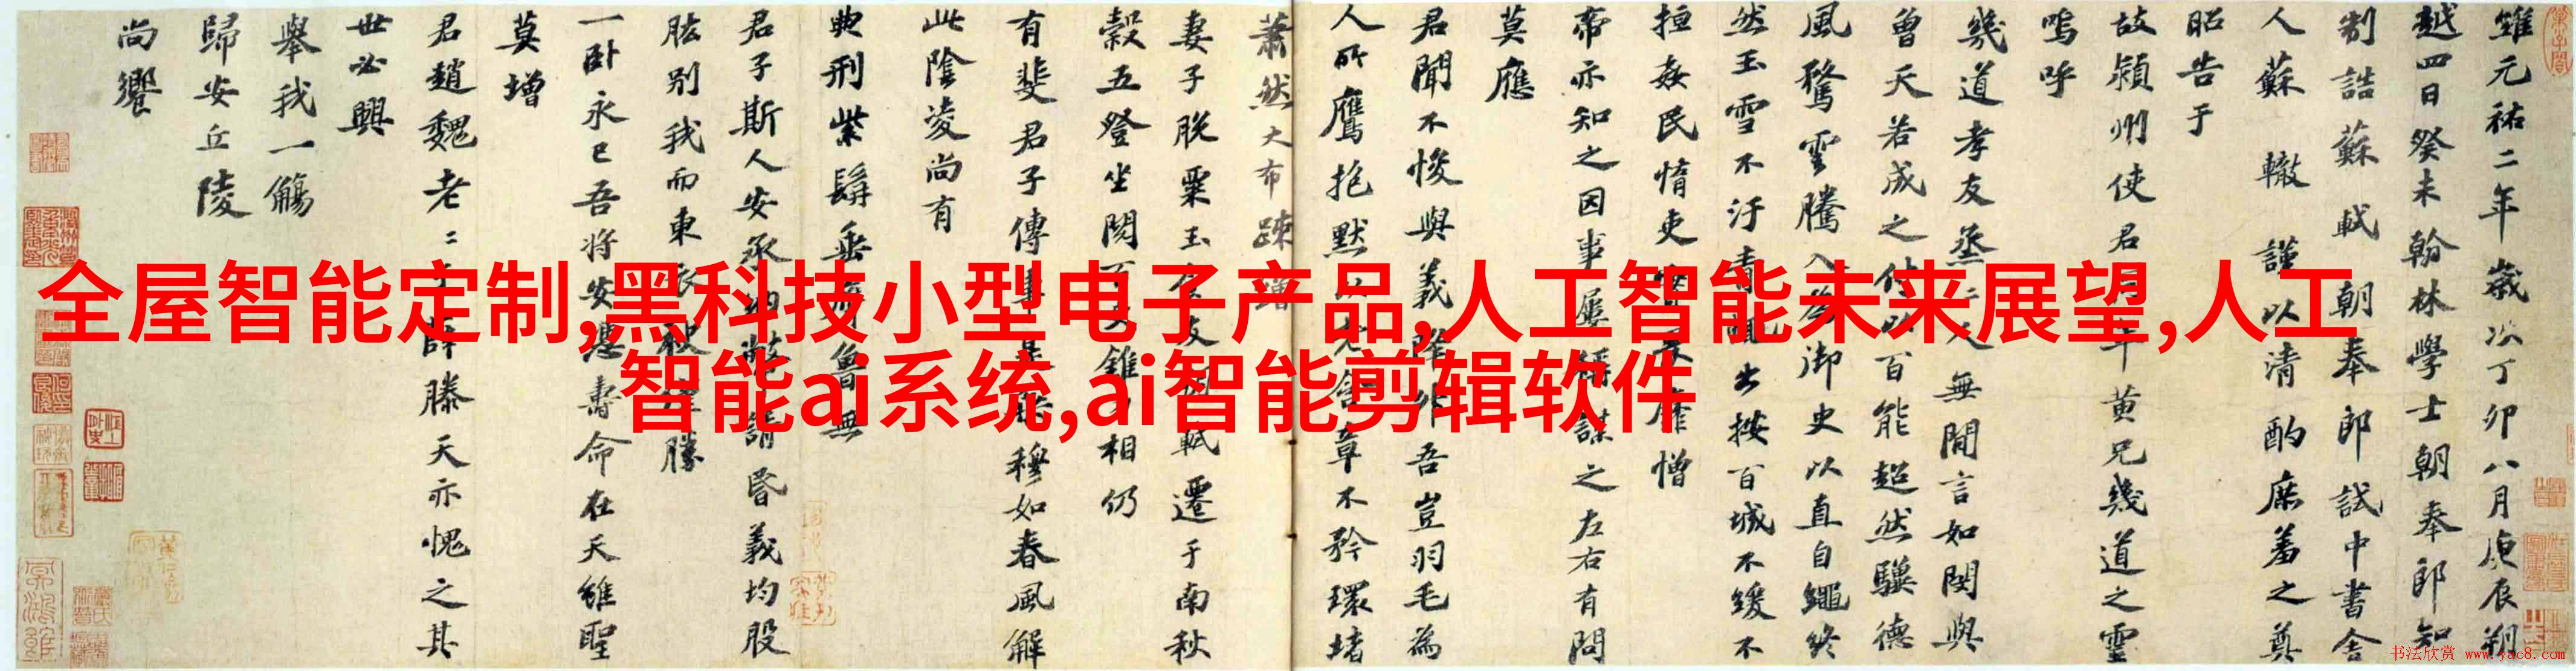 全屋智能定制,黑科技小型电子产品,人工智能未来展望,人工
智能ai系统,ai智能剪辑软件
維元祐二年歲次丁卯八月庚辰朔
越四日癸未翰林學士朝奉郎知
制誥蘇軾朝奉郎試中書舍
人蘇轍謹以清酌庶羞之奠
昭告于
故潁州使君同年黃兄幾道之靈
嗚呼
幾道孝友烝二人無間言如閔與
曾天若成之付以百能超然驥德
風騖雲騰入為御史以直自繩終
然玉雪不汙青蠅出按百城不緩不
擅姦民惰吏靡憎
帝亦知之因事屢稱謀之左右有問
莫應
君聞不悛與義降升吾豈羽毛為
人所鷹抱默以老含章不矜環堵
蕭然大布疎繒
妻子脫粟玉食友朋軾遷于南秋
穀五登坐閱百吏錐刀相仍
有斐君子傳車是憑穆如春風解
此陰凌尚有
典刑紫髯垂膺魯無
君子斯人安承納幣請昏義均股
肱別我而東衣袂僅勝
一卧永已吾將安憑壽命在天雖聖
莫增
君趙魏老二于薛滕天亦愧之其
世必興
舉我一觴
歸安丘陵
尚饗
书法欣赏 www.yac8.com